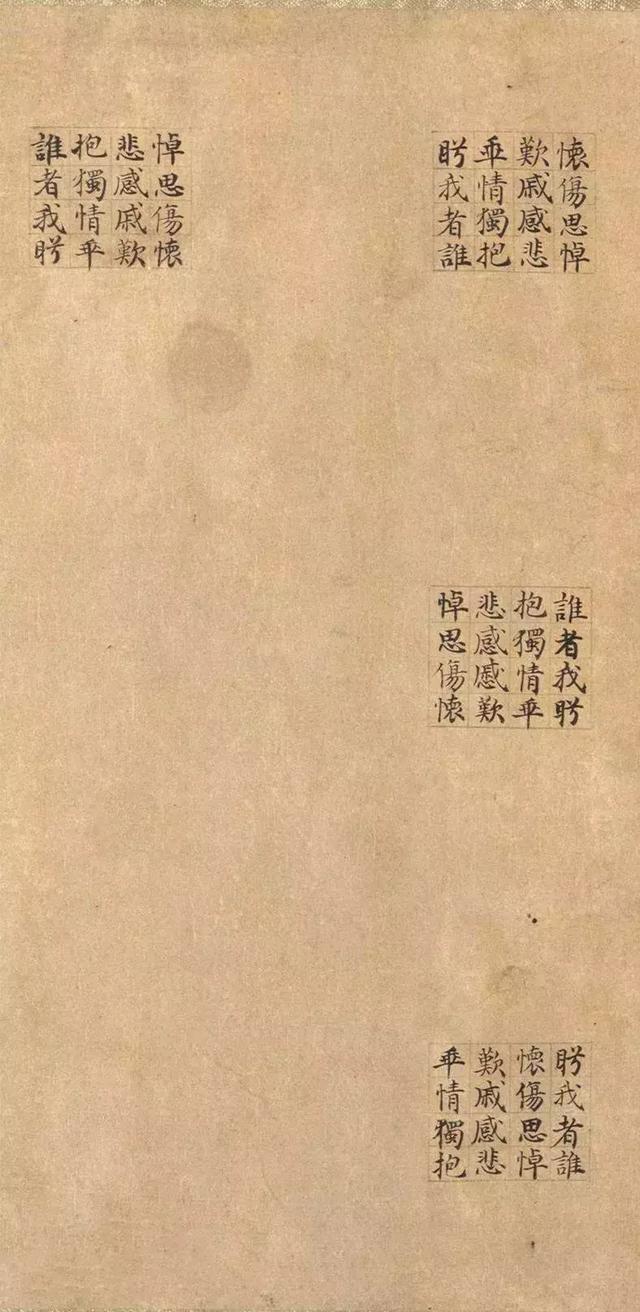 懷傷思悼
歎戚感悲
乖情獨抱
盻我者誰
悼思傷懷
悲感戚歎
抱獨情乖
誰者我盻
誰者我盻
抱獨情乖
悲感慼歎
悼思傷懷
盻我者誰
懷傷思悼
歎戚感悲
乖情獨抱